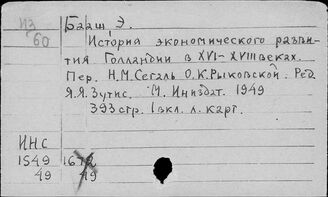 Из Бааш Э.
60
История экономического разви-
тия Голландии в XVI-XVIII веках.
Пер. Н.М. Сегаль О.К. Рыковской. Ред.
Я.Я. Зутис. М. Иниздат. 1949
393 стр. 1 вкл. л. карт.
ИНС
1549 1672
49 49